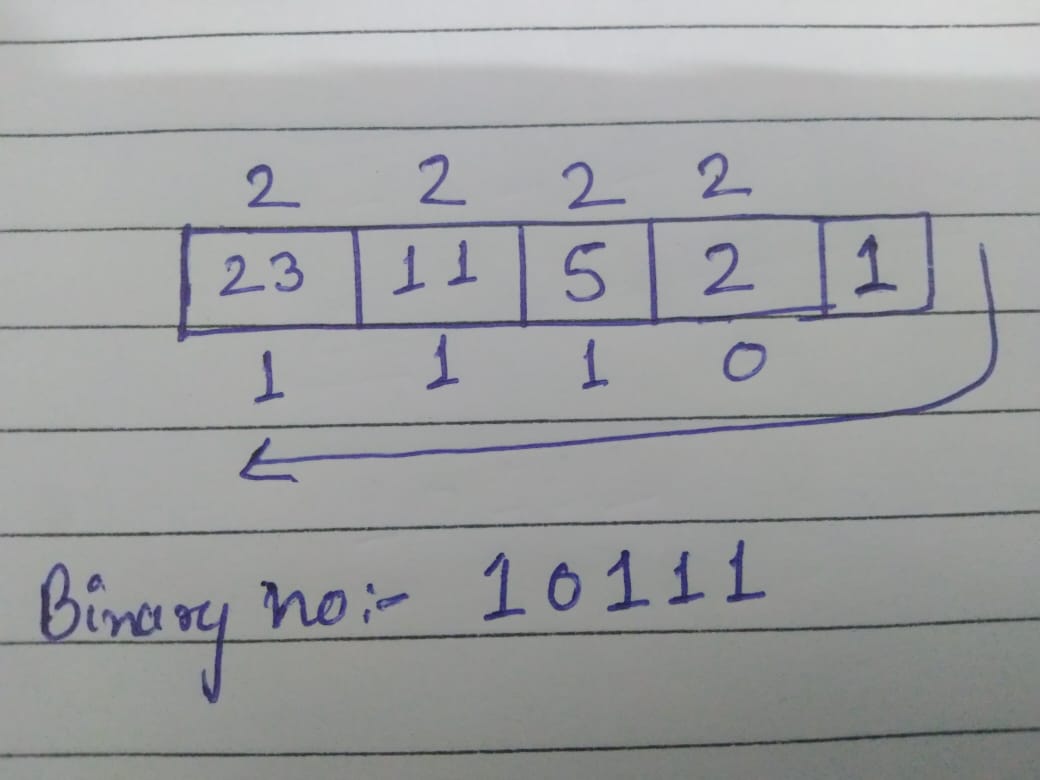 2 2 2 2
23 11 5 2 1
1 1 1 0
Binary no:- 10111